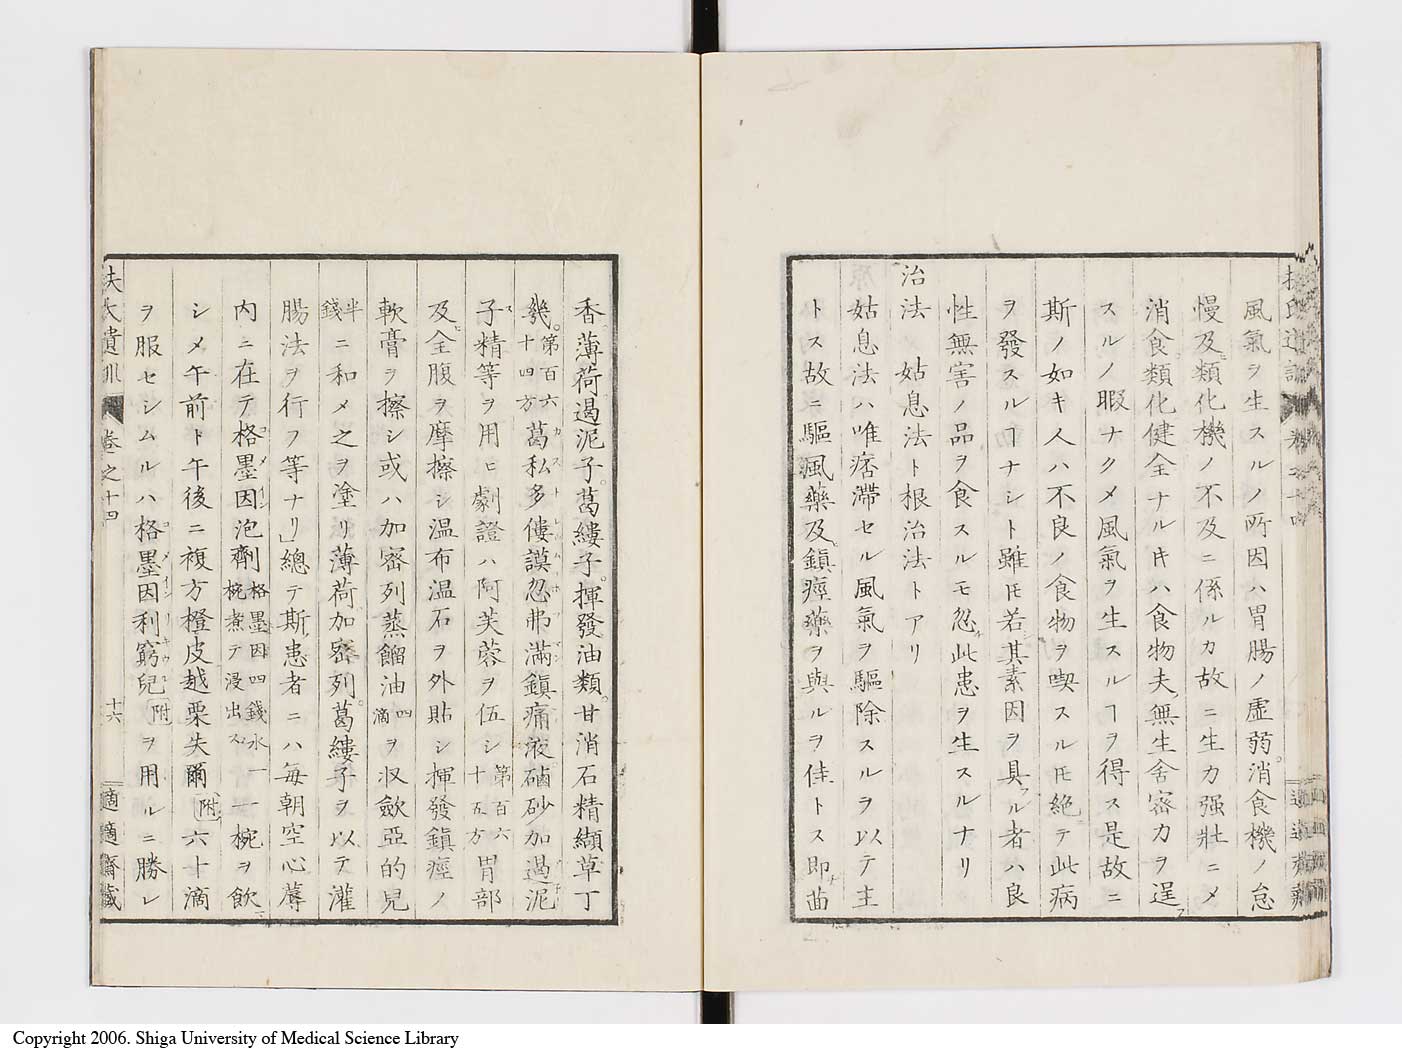 風氣ヲ生スルノ所因ハ胃腸ノ虛弱消食機ノ怠
慢及ヒ類化機ノ不及ニ係ルカ故ニ生力强壯ニメ
消食類化健全ナル𪜈ハ食物夫ノ無生舍密力ヲ逞フ
スルノ暇ナクメ風氣ヲ生スルヿヲ得ス是故ニ
斯ノ如キ人ハ不良ノ食物ヲ喫スルモ絶テ此病
ヲ發スルヿナシト雖𪜈若シ其素因ヲ具フル者ハ良
性無害ノ品ヲ食スルモ忽チ此患ヲ生スルナリ
治法 姑息法ト根治法トアリ
姑息法ハ唯痞滯セル風氣ヲ驅除スルヲ以テ主
トス故ニ驅風藥及ヒ鎭痙藥ヲ與ルヲ佳トス即チ茴
香。薄荷遏泥子。葛縷子。揮發油類。甘消石精纈草丁
幾。第百六十四方葛私多僂謨忽弗滿鎭痛液磠砂加遏泥
子精等ヲ用ヒ劇證ハ阿芙蓉ヲ伍シ第百六十五方胃部
及ヒ全腹ヲ摩擦シ温布温石ヲ外貼シ揮發鎭痙ノ
軟膏ヲ擦シ或ハ加密列蒸餾油四滴ヲ収歛亞的兒
半錢ニ和メ之ヲ塗リ薄荷加密列。葛縷子ヲ以テ灌
腸法ヲ行フ等ナリ」總テ斯患者ニハ每朝空心蓐
内ニ在テ格墨因泡劑格墨因四錢水一椀煮テ浸出ス一椀ヲ飮
シメ午前ト午後ニ複方橙皮越栗失爾附六十滴
ヲ服セシムルハ格墨因利窮兒附ヲ用ルニ勝レ
扶氏遺訓 卷之十四 十六 適適齋藏
Copyright 2006. Shiga University of Medical Science Library